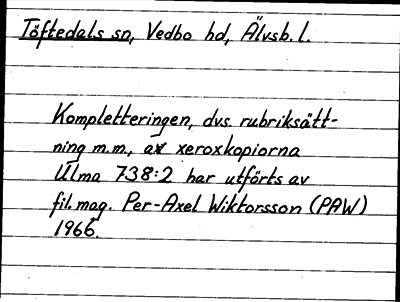 Töftedals sn, Vedbo hd, Älvsb. l.
Kompletteringen, dvs. rubriksätt-
ning m.m., av xeroxkopiorna
Ulma 738:2 har utförts av
fil. mag. Per-Axel Wiktorsson (PAW)
1966.